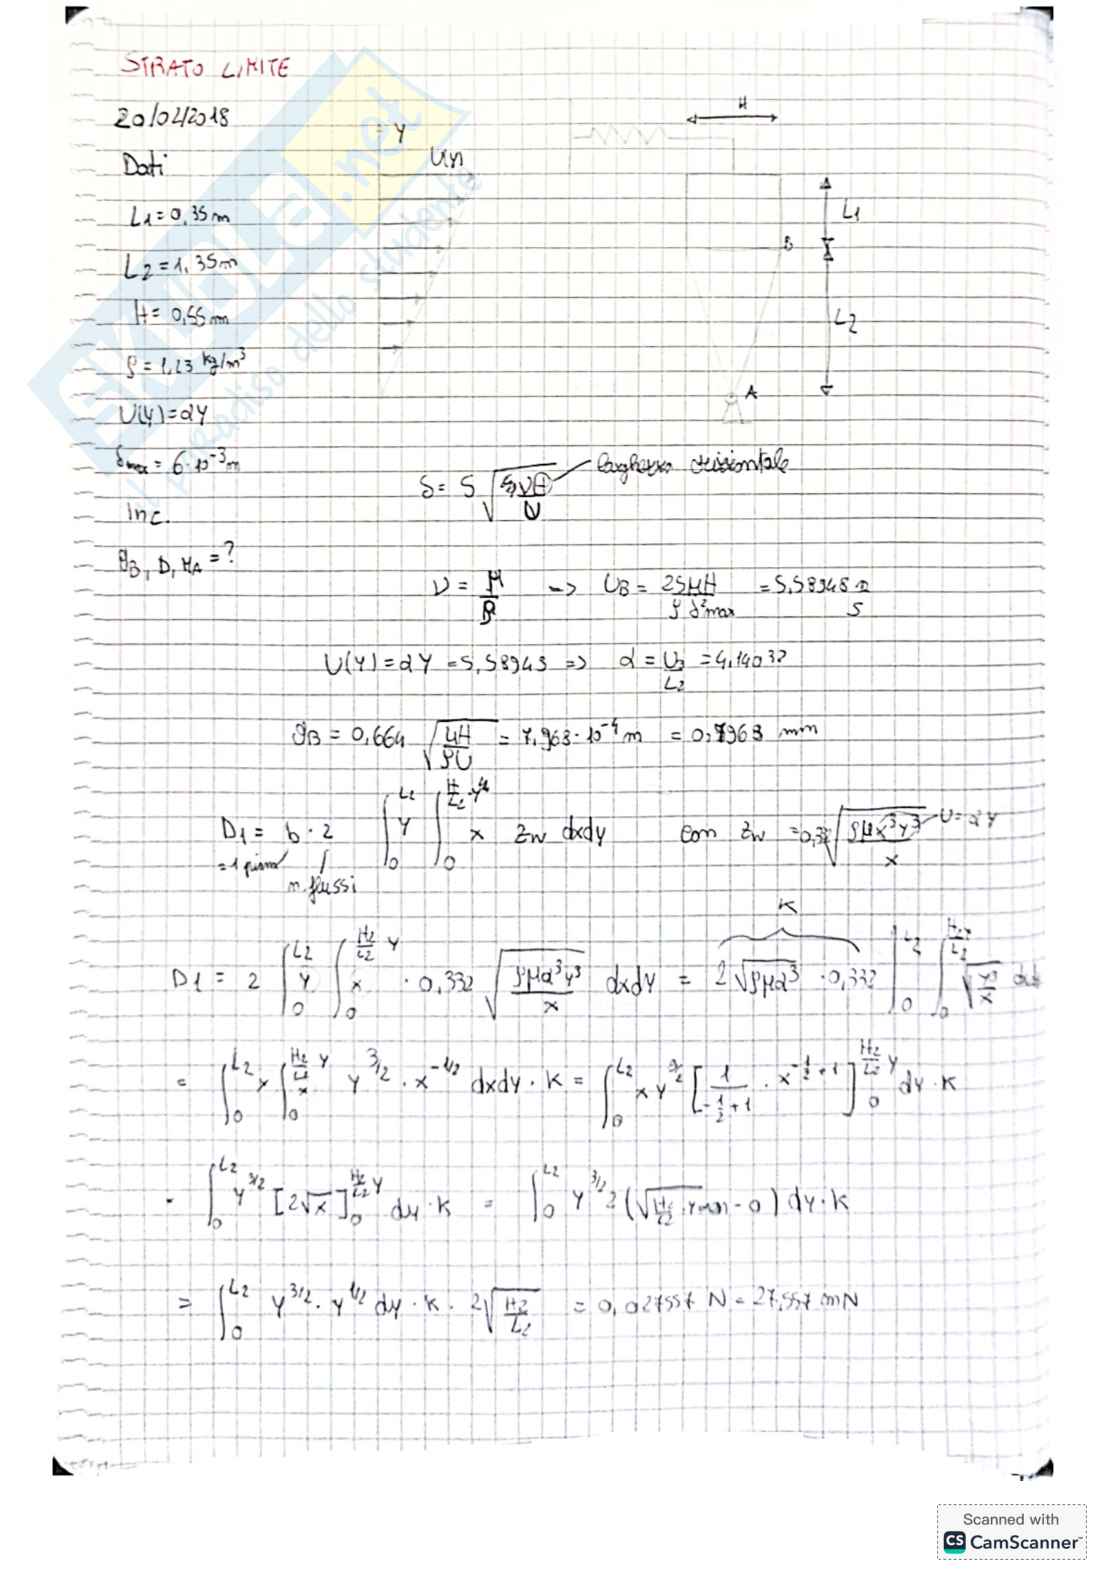 STRATO LIMITE
20/02/2018
Dati
L1 = 0,35 m
L2 = 1,35 m
H = 0,55 m
ρ = 1,23 kg/m³
U(y) = αy
δmax = 6·10⁻³ m
Inc.
ϑB, D, MA = ?
Y
Un
H
L1
B
L2
A
δ = 5 √(νH/U) larghezza orizzontale
ν = μ/ρ => UB = 25μH/(ρ δ²max) = 5,58948 m/s
U(y) = αy = 5,58943 => α = UB/L2 = 4,14032
ϑB = 0,664 √(μH/ρU) = 7,963·10⁻⁴ m = 0,7963 mm
D1 = b·2 ∫₀^L2 y ∫₀^(H/L2·y) x τw dxdy con τw = 0,332 √(ρμα³y³/x) U = αy
= 1 n. flussi
D1 = 2 ∫₀^L2 y ∫₀^(H2/L2 y) x · 0,332 √(ρμα³y³/x) dxdy = 2√(ρμα³) · 0,332 ∫₀^L2 ∫₀^(H2/L2 y) √(y³/x)
K
= ∫₀^L2 x ∫₀^(H2/L2 y) x y^3/2 · x^-1/2 dxdy · K = ∫₀^L2 x y^3/2 [1/(-1/2+1) · x^(-1/2+1)]₀^(H2/L2 y) dy · K
= ∫₀^L2 y^3/2 [2√x]₀^(H2/L2 y) dy · K = ∫₀^L2 y^3/2 2 (√(H2/L2 · y) - 0) dy · K
= ∫₀^L2 y^3/2 · y^1/2 dy · K · 2√(H2/L2) = 0,027557 N = 27,557 mN
SKUOLA.net
il paradiso dello studente
Scanned with
CS CamScanner